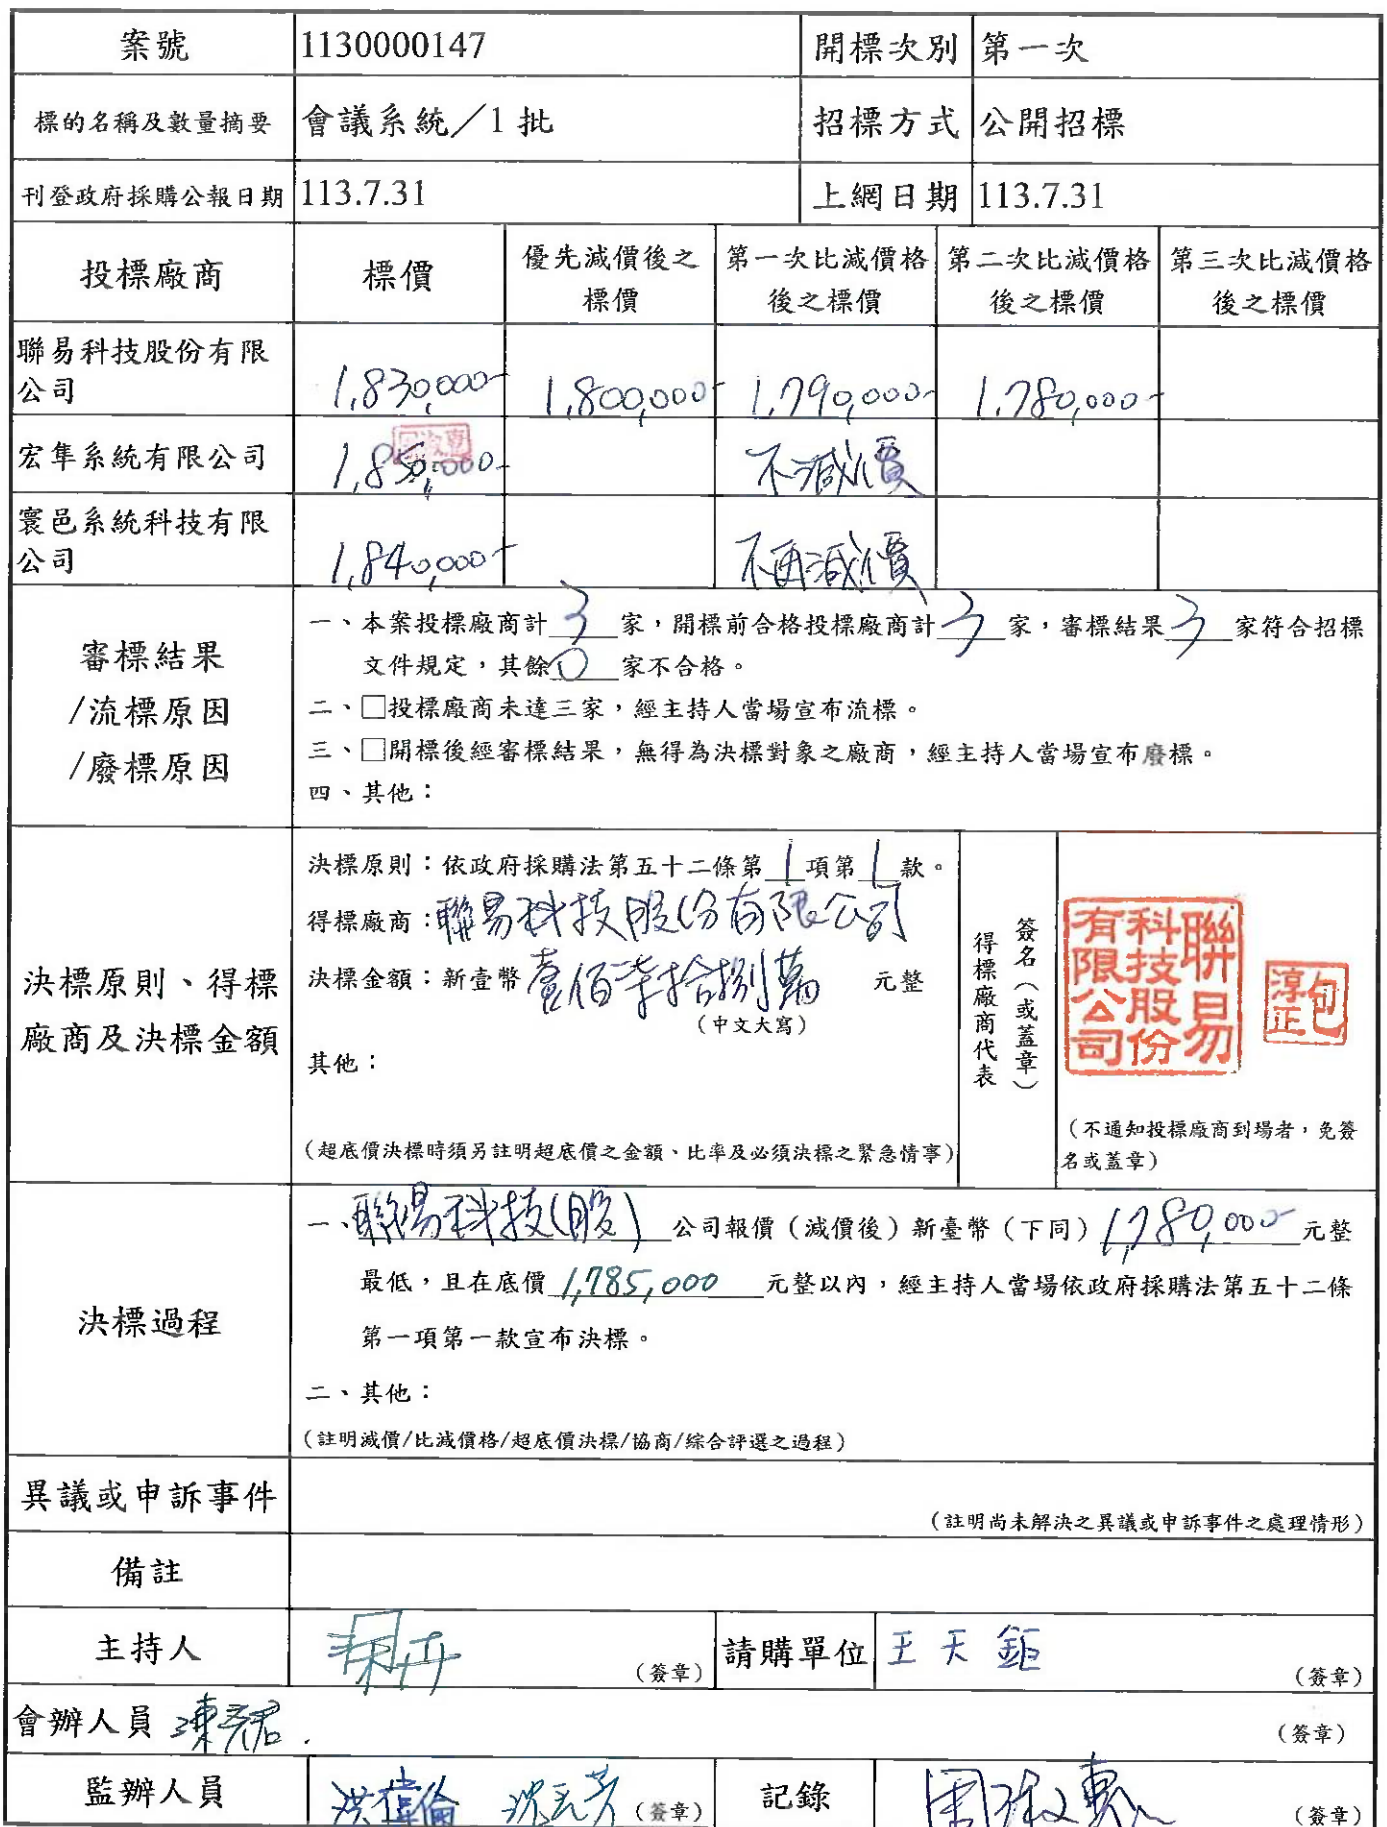 案號 1130000147 開標次別 第一次
標的名稱及數量摘要 會議系統／1 批 招標方式 公開招標
刊登政府採購公報日期 113.7.31 上網日期 113.7.31
投標廠商 標價 優先減價後之標價 第一次比減價格後之標價 第二次比減價格後之標價 第三次比減價格後之標價
聯易科技股份有限公司 1,830,000- 1,800,000- 1,790,000- 1,780,000-
宏隼系統有限公司 1,850,000- 不減價
寰邑系統科技有限公司 1,840,000- 不再減價
審標結果
/流標原因
/廢標原因
一、本案投標廠商計 3 家，開標前合格投標廠商計 3 家，審標結果 3 家符合招標
文件規定，其餘 0 家不合格。
二、□投標廠商未達三家，經主持人當場宣布流標。
三、□開標後經審標結果，無得為決標對象之廠商，經主持人當場宣布廢標。
四、其他：
決標原則、得標
廠商及決標金額
決標原則：依政府採購法第五十二條第 1 項第 1 款。
得標廠商：聯易科技股份有限公司
決標金額：新臺幣 壹佰柒拾捌萬 元整
（中文大寫）
其他：
（超底價決標時須另註明超底價之金額、比率及必須決標之緊急情事）
得標廠商代表
簽名（或蓋章）
聯易科技股份有限公司
包淳正
（不通知投標廠商到場者，免簽
名或蓋章）
決標過程
一、聯易科技(股) 公司報價（減價後）新臺幣（下同）1,780,000- 元整
最低，且在底價 1,785,000 元整以內，經主持人當場依政府採購法第五十二條
第一項第一款宣布決標。
二、其他：
（註明減價/比減價格/超底價決標/協商/綜合評選之過程）
異議或申訴事件
（註明尚未解決之異議或申訴事件之處理情形）
備註
主持人 （簽章） 請購單位 王天鉅 （簽章）
會辦人員 （簽章）
監辦人員 洪偉倫 （簽章） 記錄 （簽章）